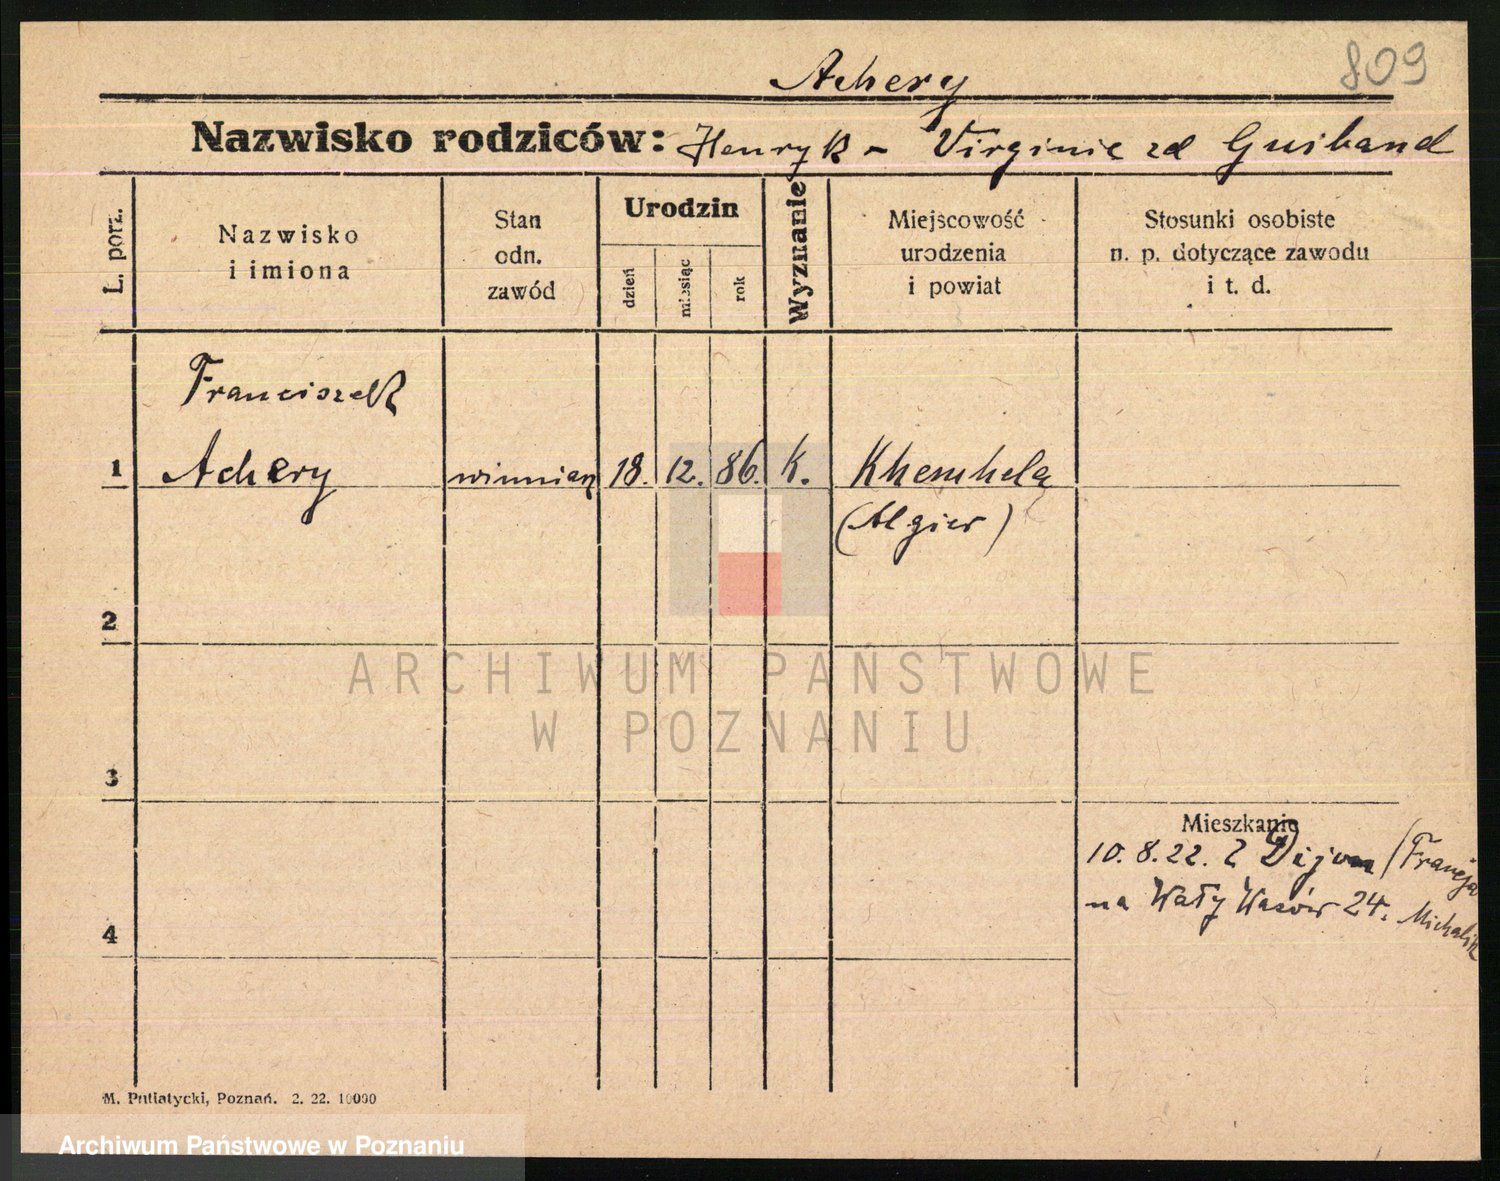 809
Achery
Nazwisko rodziców: Henryk - Virginie zd Guiband
L. porz.
Nazwisko
i imiona
Stan
odn.
zawód
Urodzin
dzień
miesiąc
rok
Wyznanie
Miejscowość
urodzenia
i powiat
Stosunki osobiste
n. p. dotyczące zawodu
i t. d.
Franciszek
1 Achery 18. 12. 86. K. Khemhela
(Algier)
2
3
Mieszkanie
10. 8. 22. z Dijon (Francja
na Wały Wazów 24. Michalik
4
M. Putiatycki, Poznań. 2. 22. 10000
ARCHIWUM PAŃSTWOWE
W POZNANIU
Archiwum Państwowe w Poznaniu